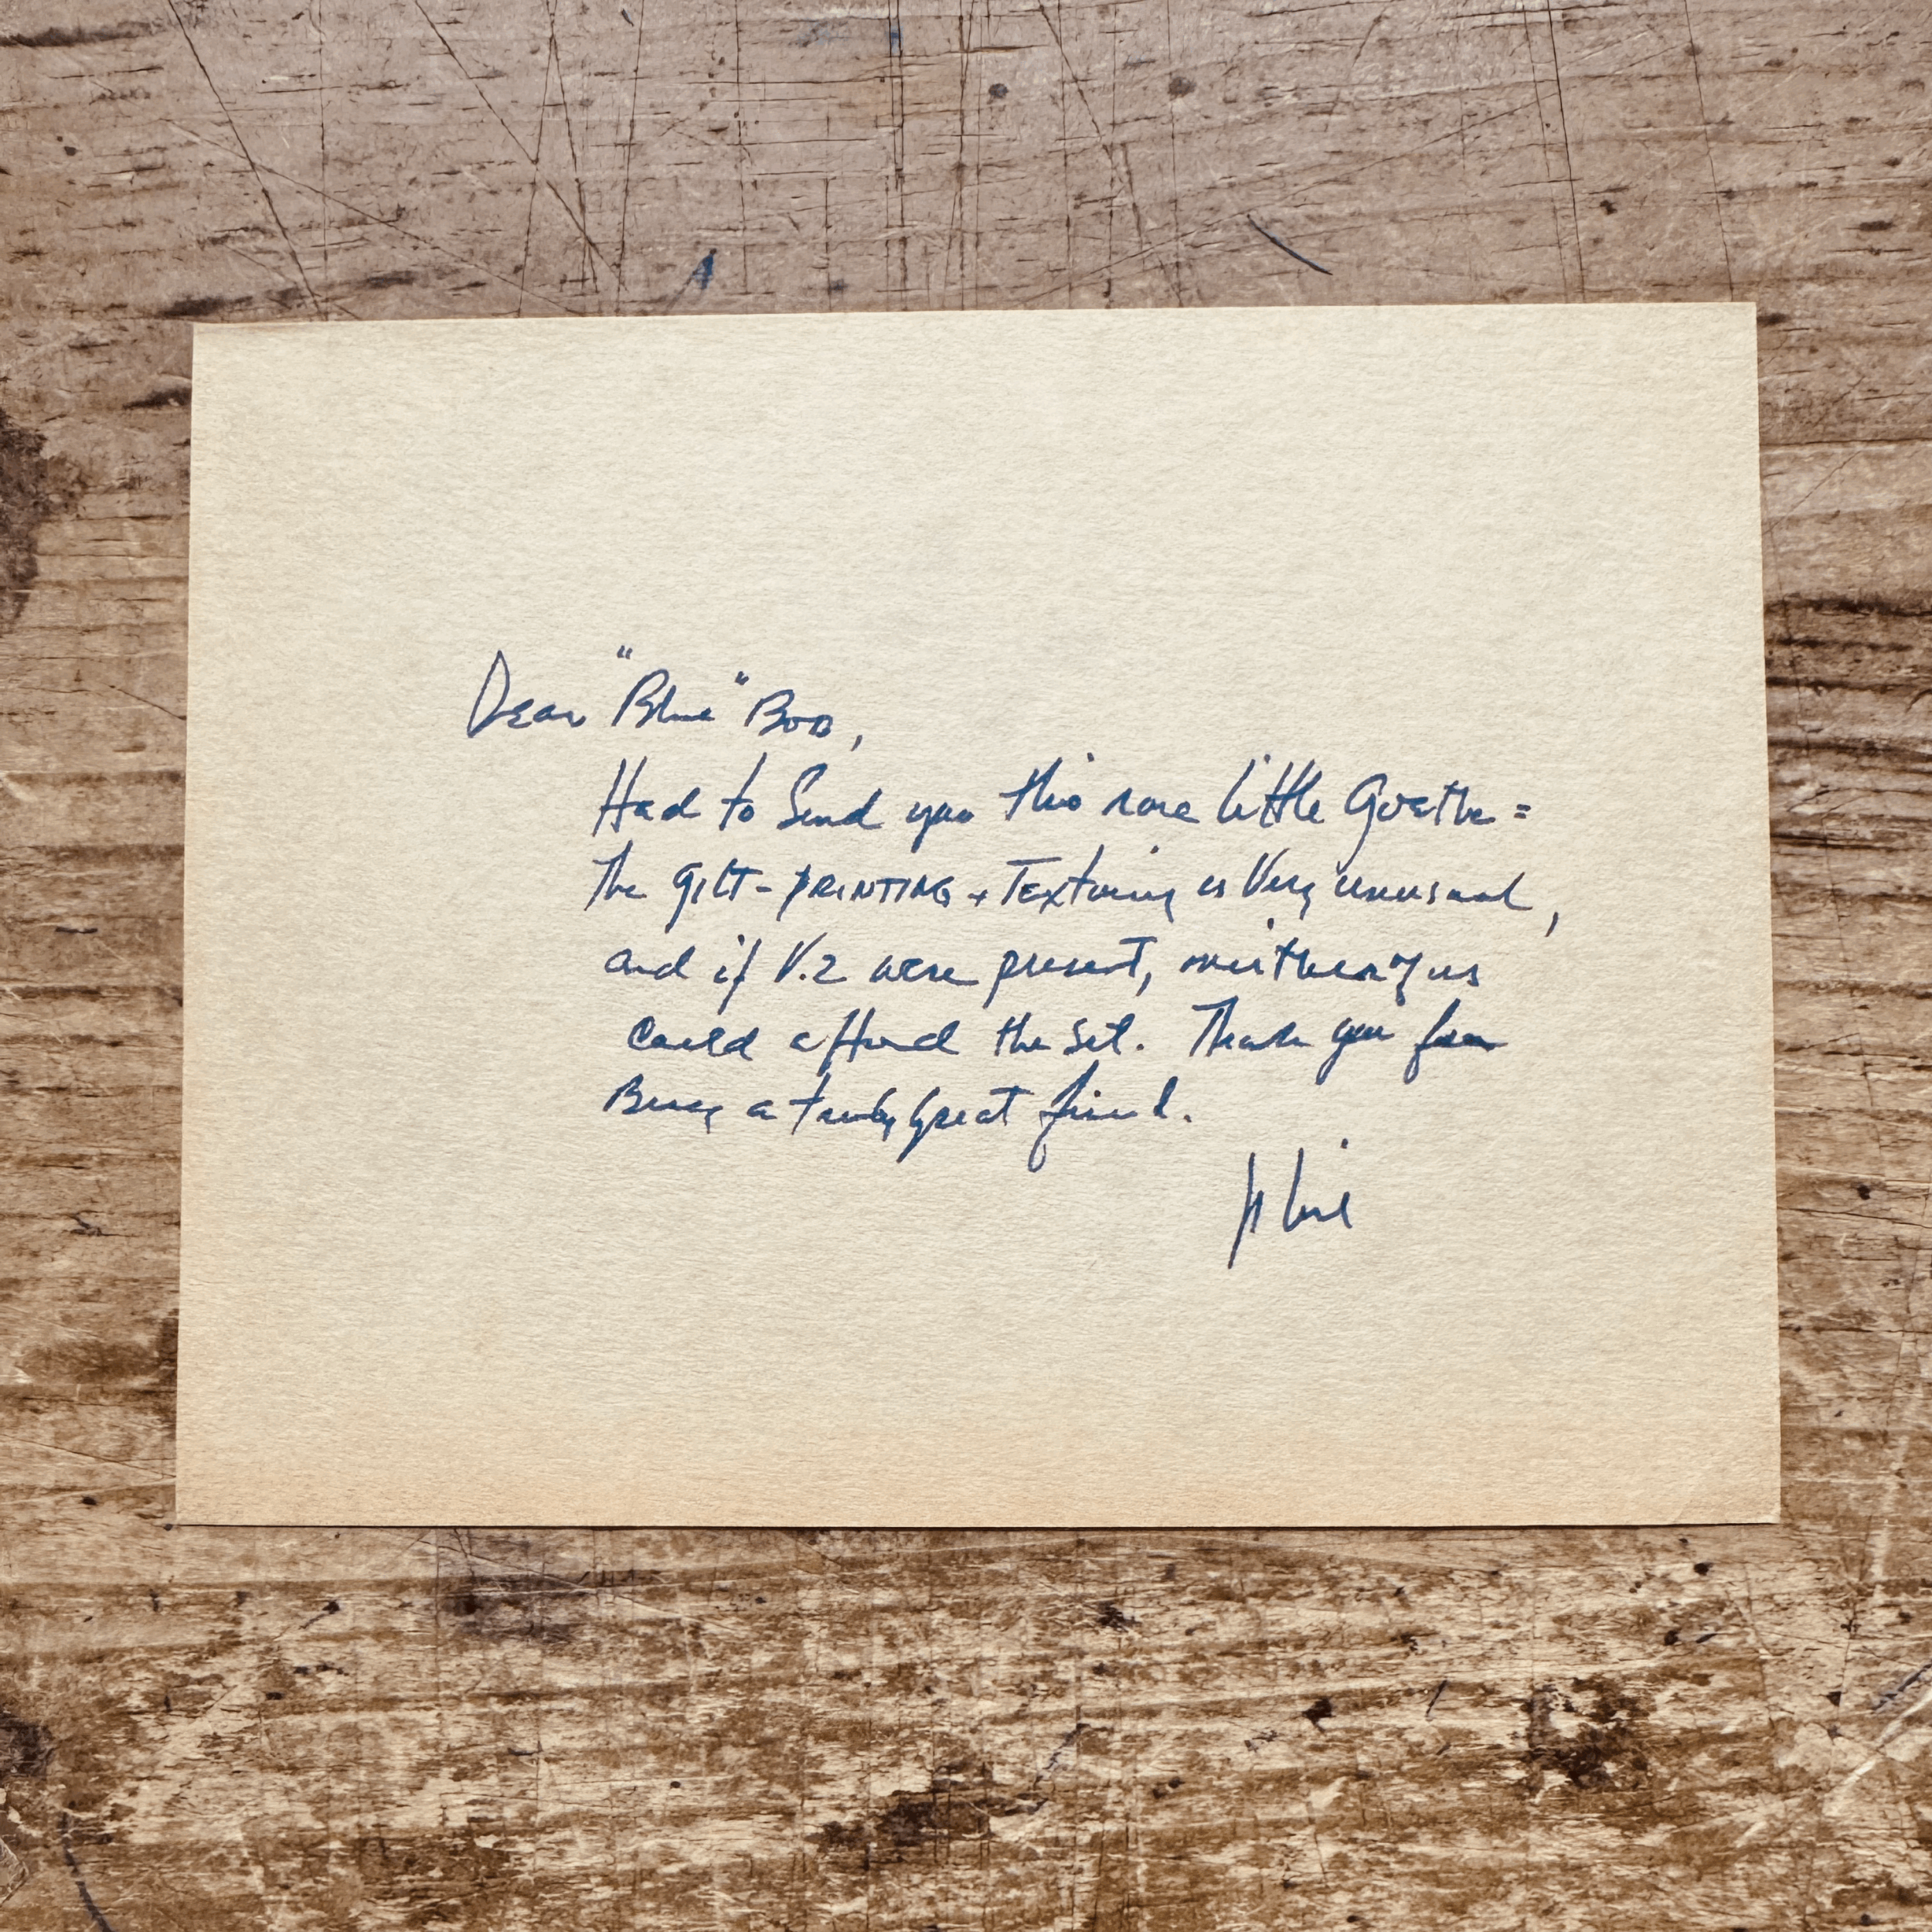 Dear "Blue" Bob,
Had to Send you this rare little Goethe =
The GILT-PRINTING + Texturing is Very unusual,
and if V.2 were present, neither of us
could afford the set. Thank you for
Being a truly great friend.